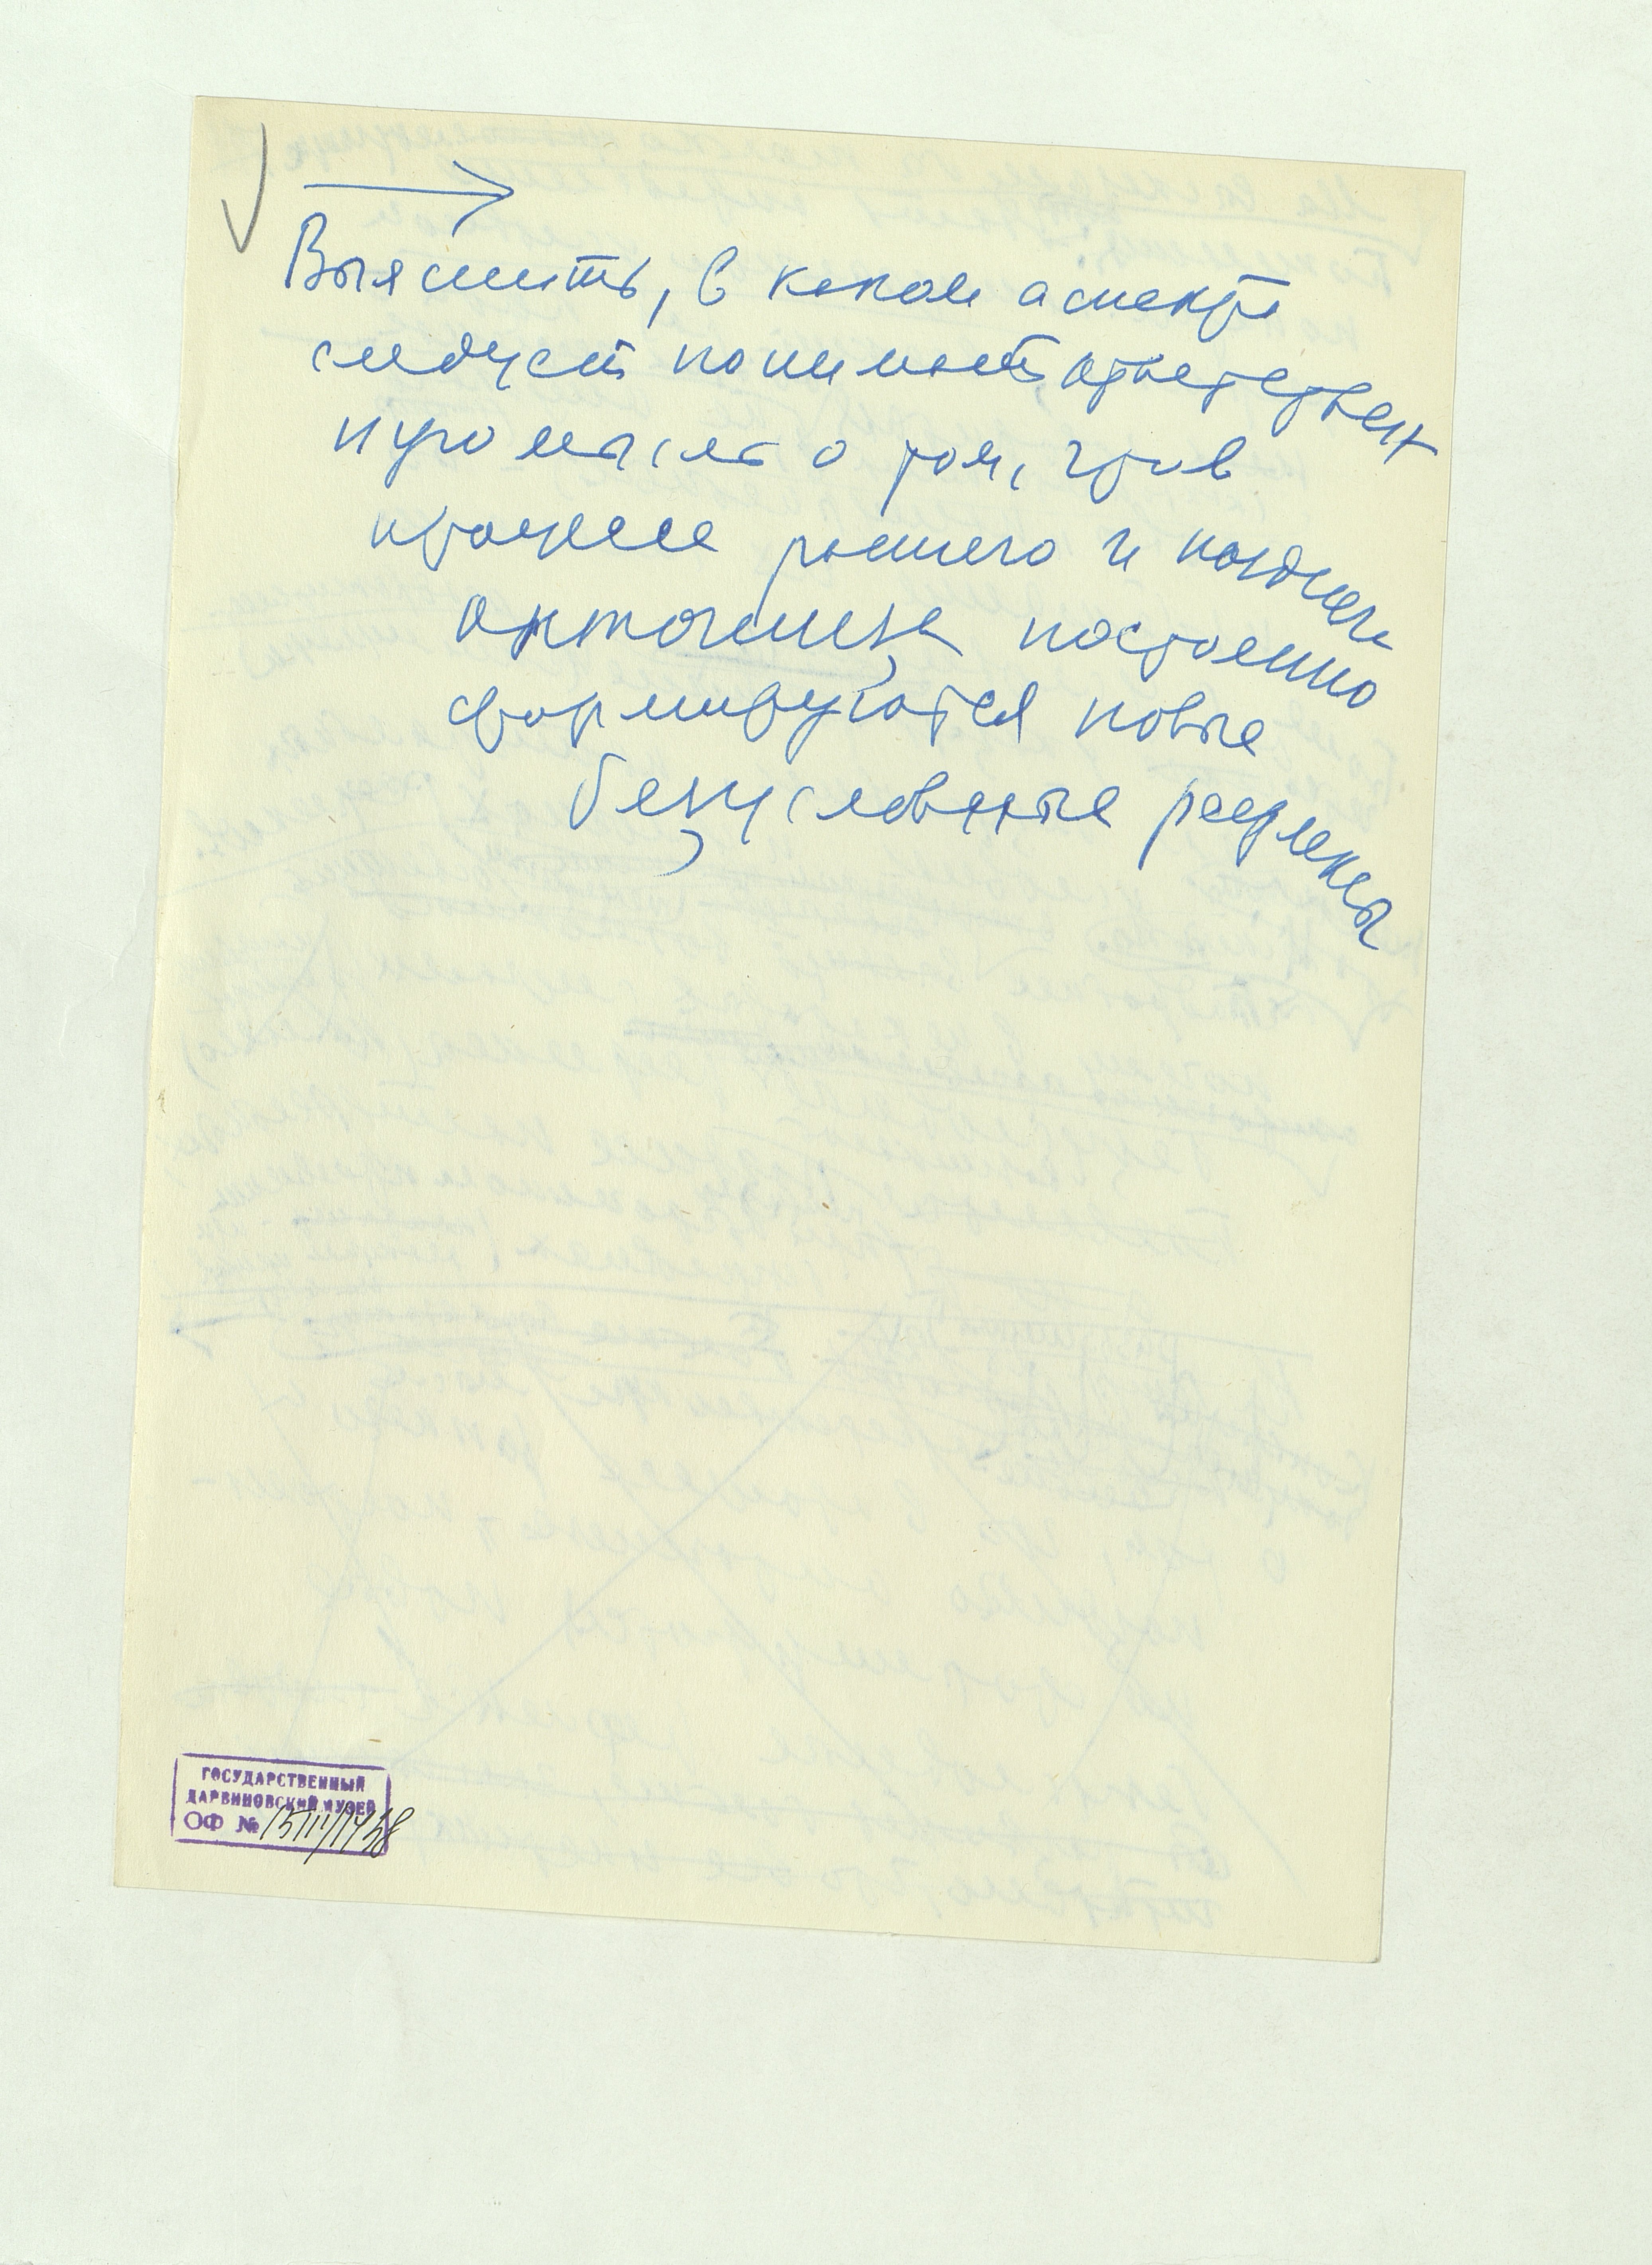 Выяснить, в каком аспекте
следует понимать, ответствен
ную мысль о том, что в
процессе раннего и позднего
онтогенеза постоянно
формируются новые
безусловные рефлексы
ГОСУДАРСТВЕННЫЙ
ДАРВИНОВСКИЙ МУЗЕЙ
ОФ №